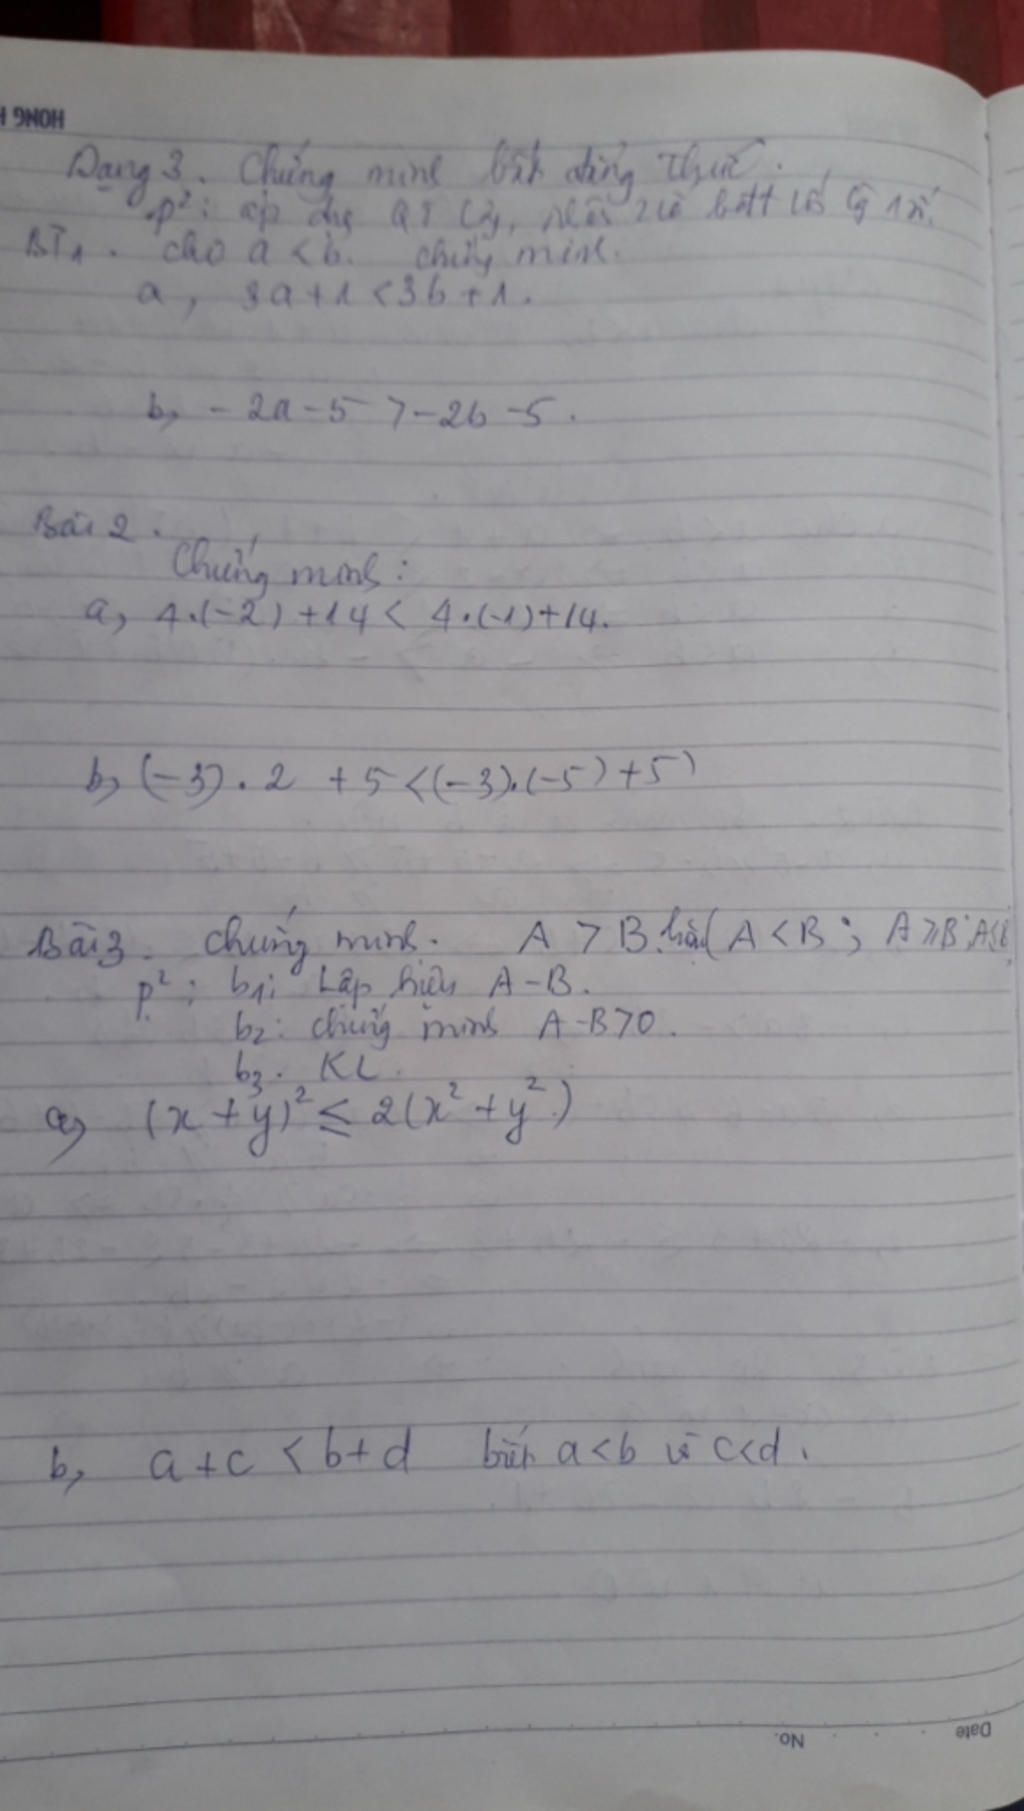 Dạng 3. Chứng minh bất đẳng thức.
p²: áp dụng QT Cộng, nhân 2 vế bđtt với cùng 1 số.
BT1. cho a < b. chứng minh.
a, 3a+1 < 3b+1.
b, -2a-5 > -2b-5.
Bài 2.
Chứng minh:
a, 4.(-2) +14 < 4.(-1)+14.
b, (-3).2 +5 < (-3).(-5)+5)
Bài 3. Chứng minh. A > B hoặc (A < B; A ≥ B; A ≤ B
p²: b1: Lập hiệu A-B.
b2: chứng minh A-B>0.
b3. KL.
a, (x+y)² ≤ 2(x²+y²)
b, a+c < b+d biết a<b và c<d.
No.
Date